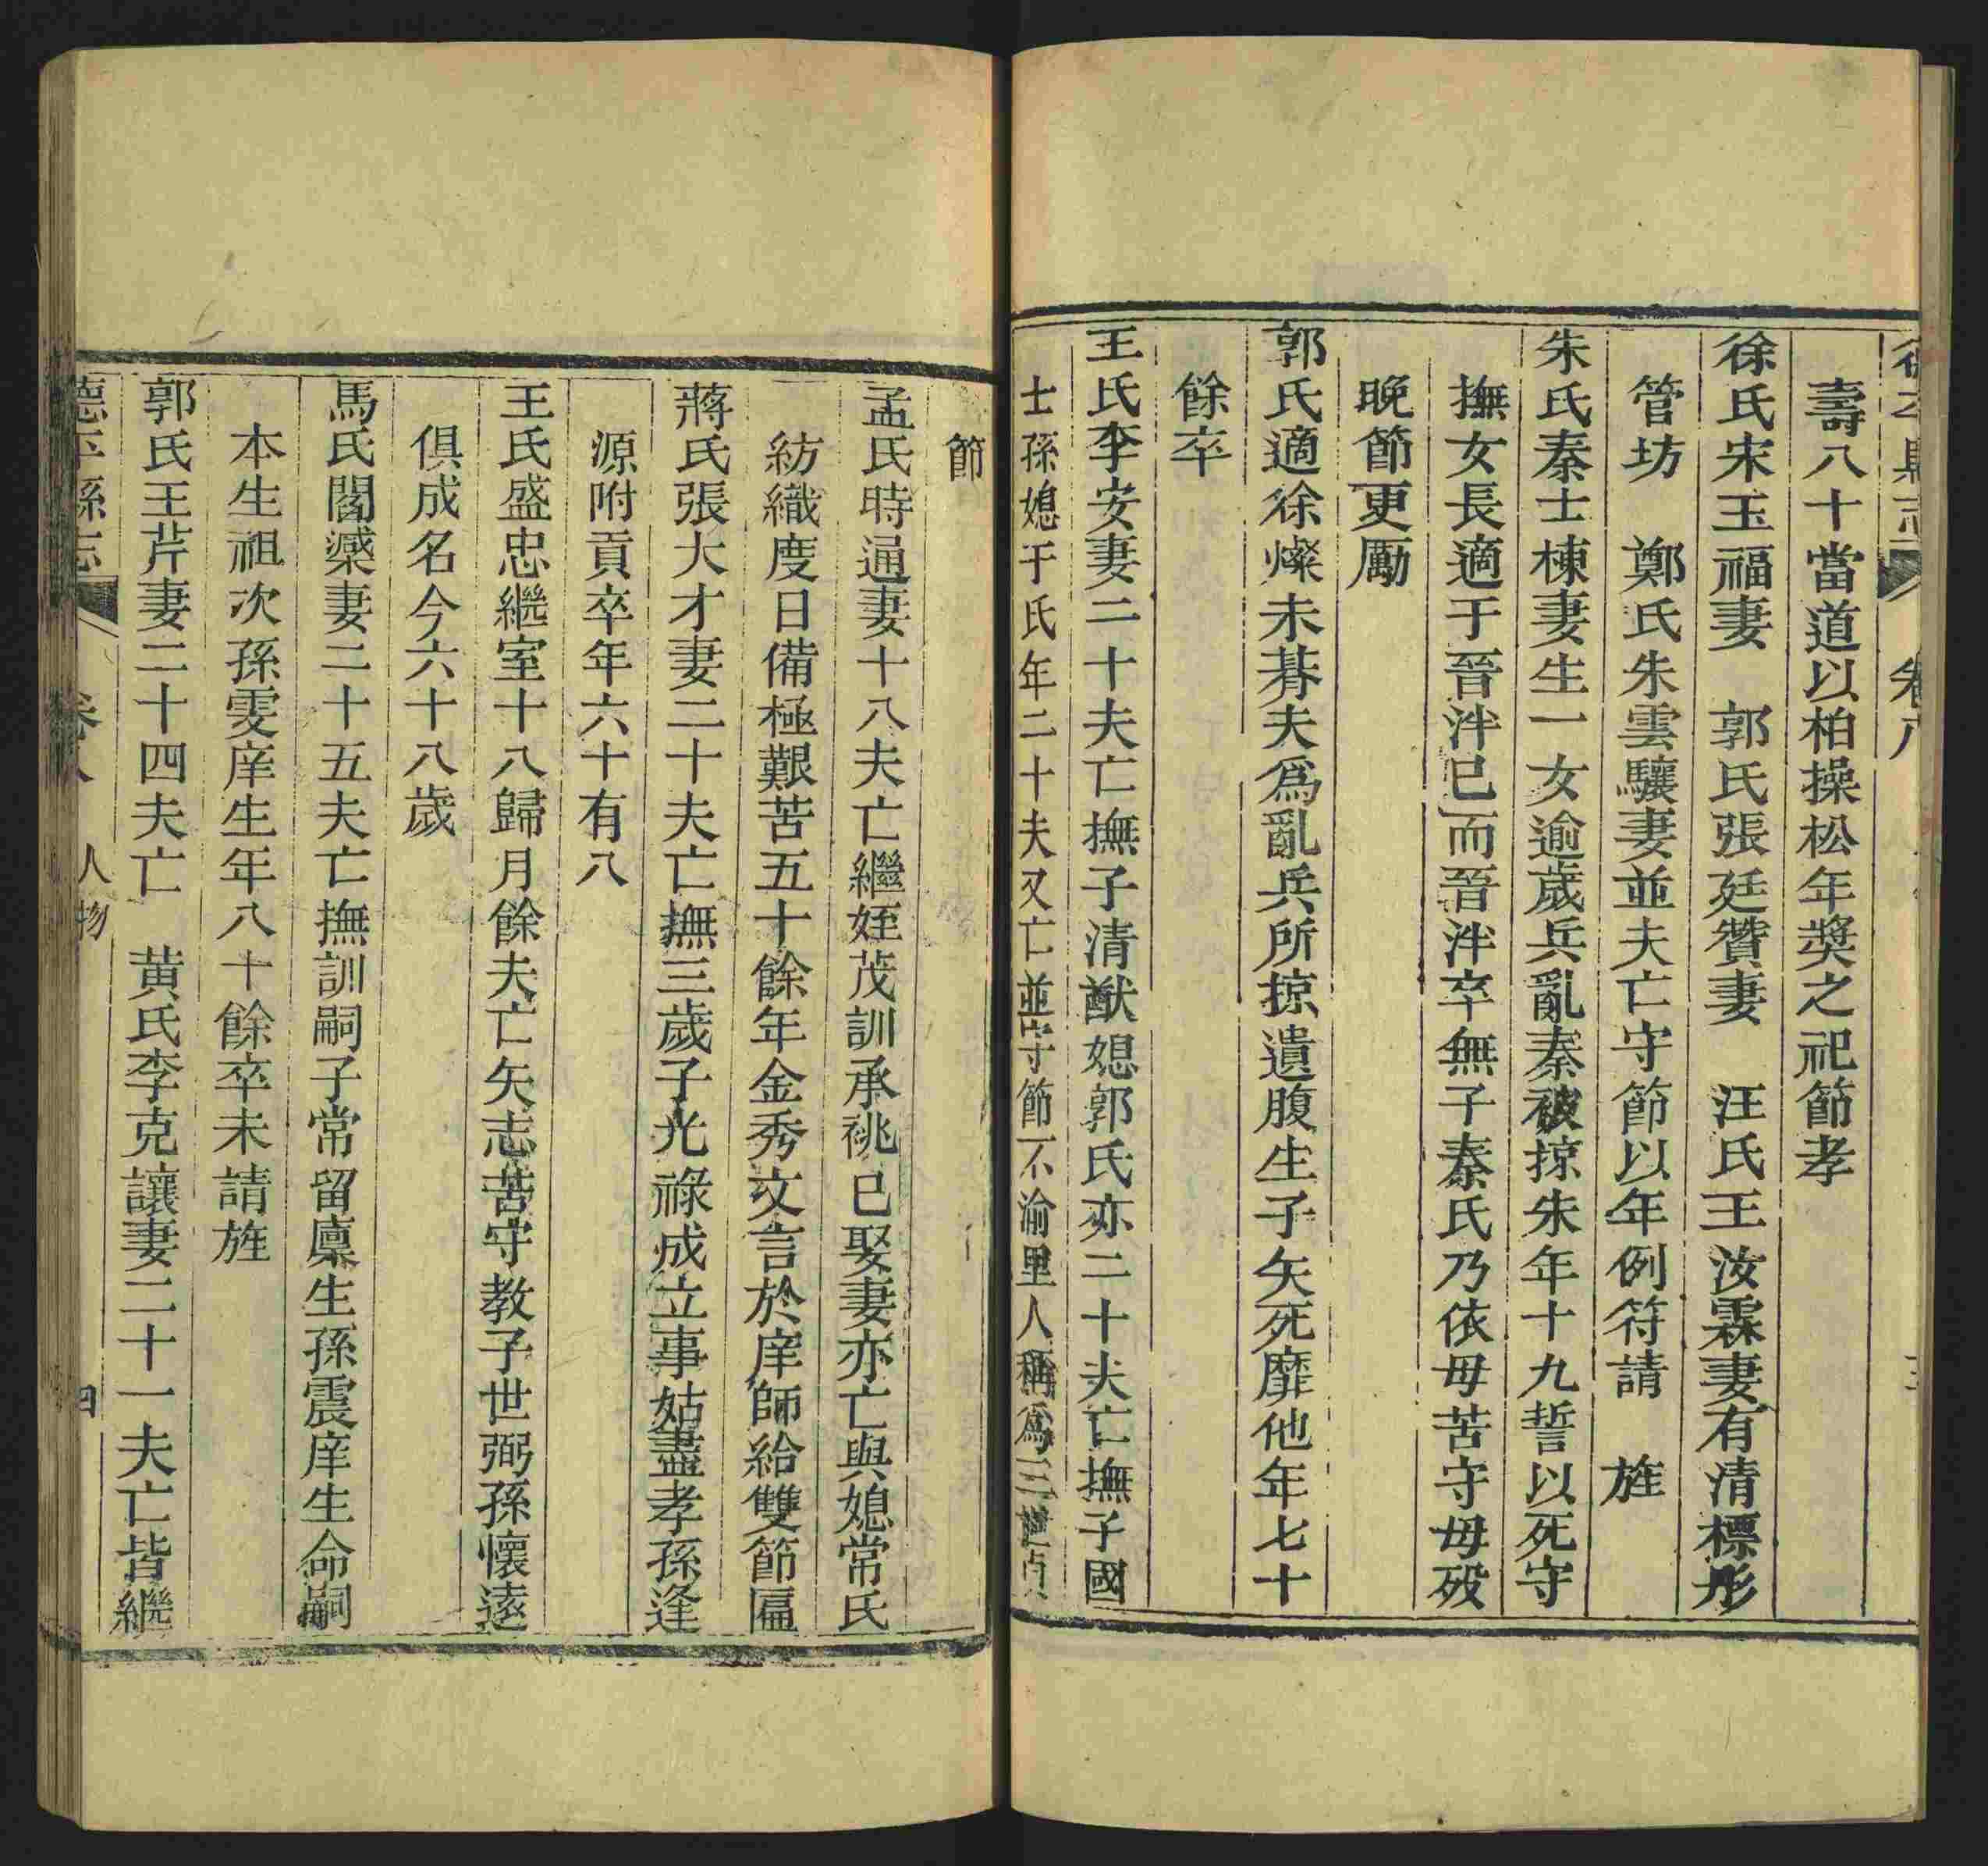 德平縣志 卷八
壽八十當道以柏操松年奬之祀節孝
徐氏宋玉福妻 郭氏張廷贊妻 汪氏王汝霖妻有清標彤
管坊 鄭氏朱雲驤妻並夫亡守節以年例符請 旌
朱氏秦士棟妻生一女逾歲兵亂秦被掠朱年十九誓以死守
撫女長適于晉泮已而晉泮卒無子秦氏乃依母苦守母歿
晩節更勵
郭氏適徐燦未朞夫爲亂兵所掠遺腹生子矢死靡他年七十
餘卒
王氏李安妻二十夫亡撫子清猷媳郭氏亦二十夫亡撫子國
士孫媳于氏年二十夫又亡並守節不渝里人稱爲三世貞
節
孟氏時通妻十八夫亡繼姪茂訓承祧已娶妻亦亡與媳常氏
紡織度日備極艱苦五十餘年金秀文言於庠師給雙節匾
蔣氏張大才妻二十夫亡撫三歲子光祿成立事姑盡孝孫逢
源附貢卒年六十有八
王氏盛忠繼室十八歸月餘夫亡矢志苦守教子世弼孫懷遠
俱成名今六十八歲
馬氏閻蘂妻二十五夫亡撫訓嗣子常留廩生孫震庠生命嗣
本生祖次孫雯庠生年八十餘卒未請旌
郭氏王芹妻二十四夫亡 黄氏李克讓妻二十一夫亡皆繼
德平縣志 卷八 人物 四